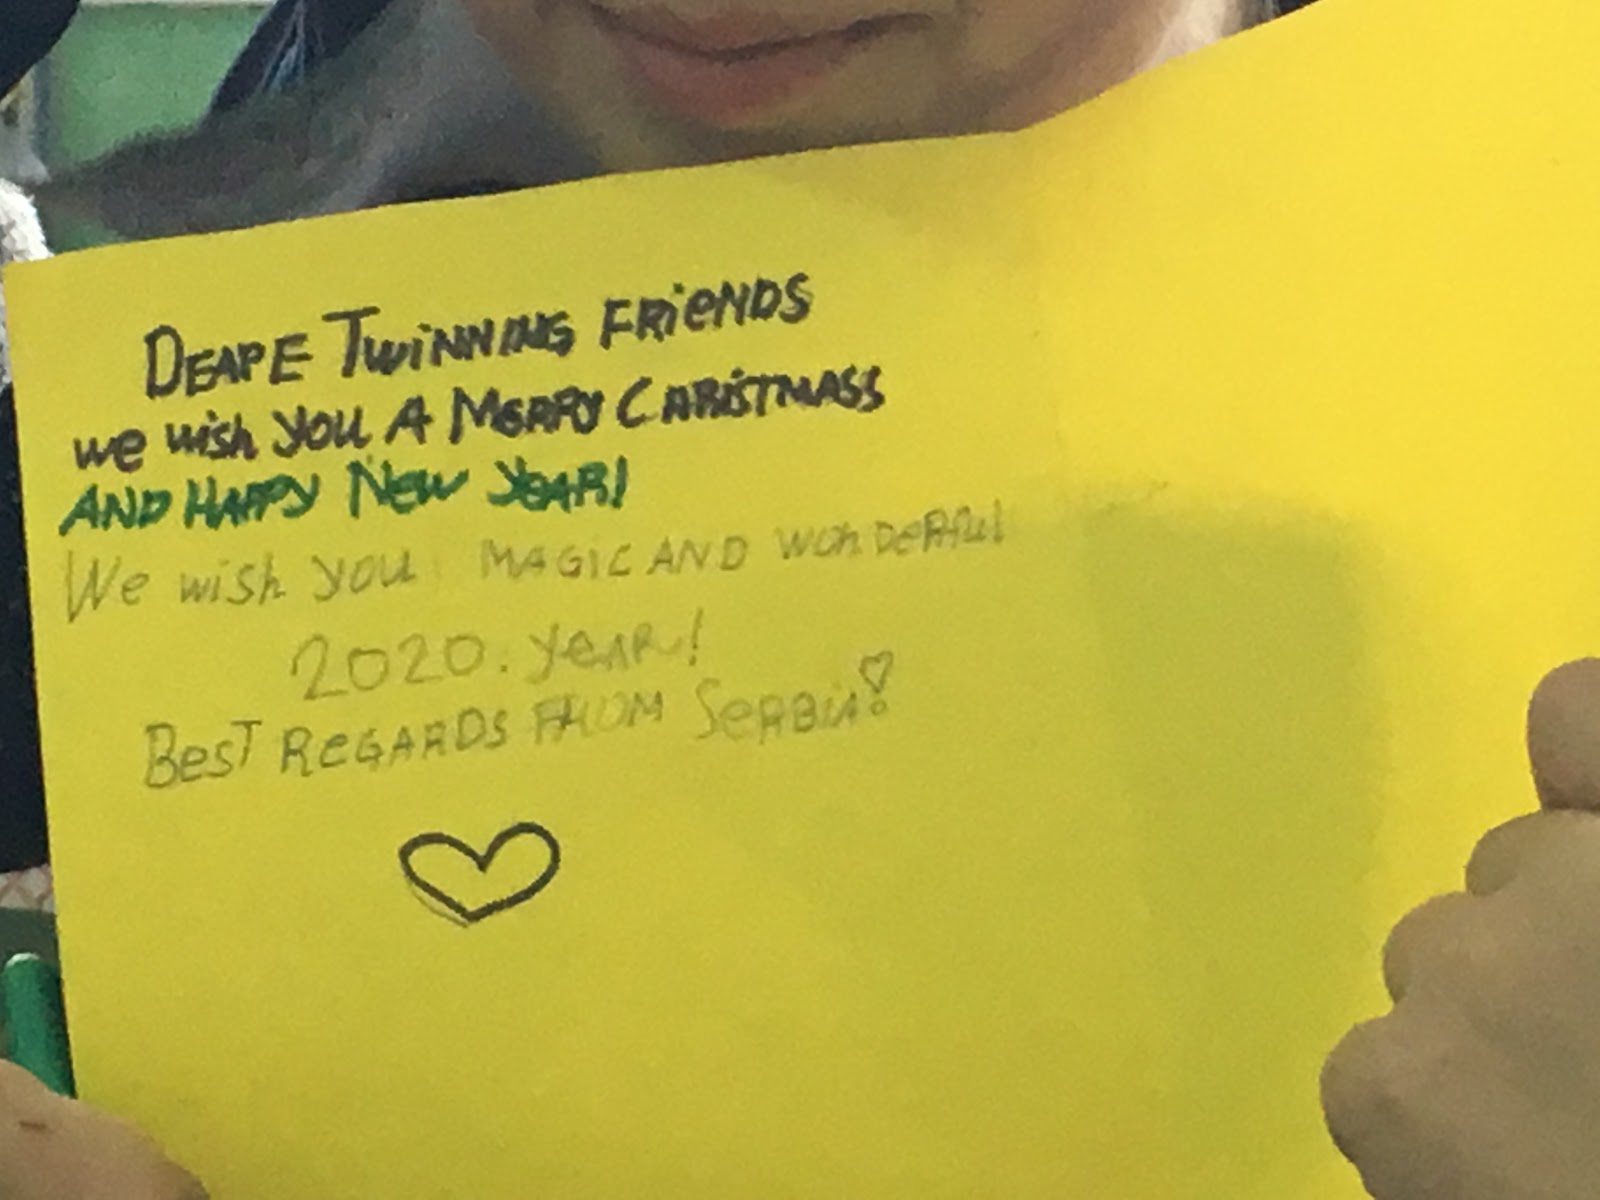 DEARE TWiNNiNG FRieNDS
we wish YOU A MERRY CHRISTMASS
AND HAPPY NEW YEAR!
We wish you MAGIC AND WONDERFUL
2020. YEAR!
BesT ReGARDS FROM SeRBiA!